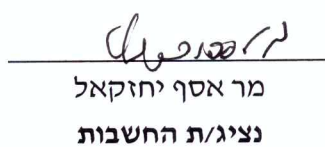 מר אסף יחזקאל
נציג/ת החשבות